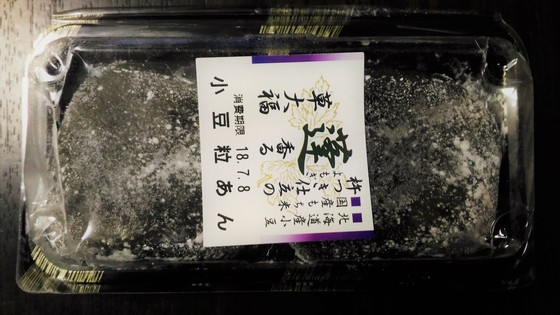 ■北海道産小豆
■国産もち米
杵つき仕立の
よもぎ
蓬香る
草大福
消費期限 18.7.8
小豆粒あん